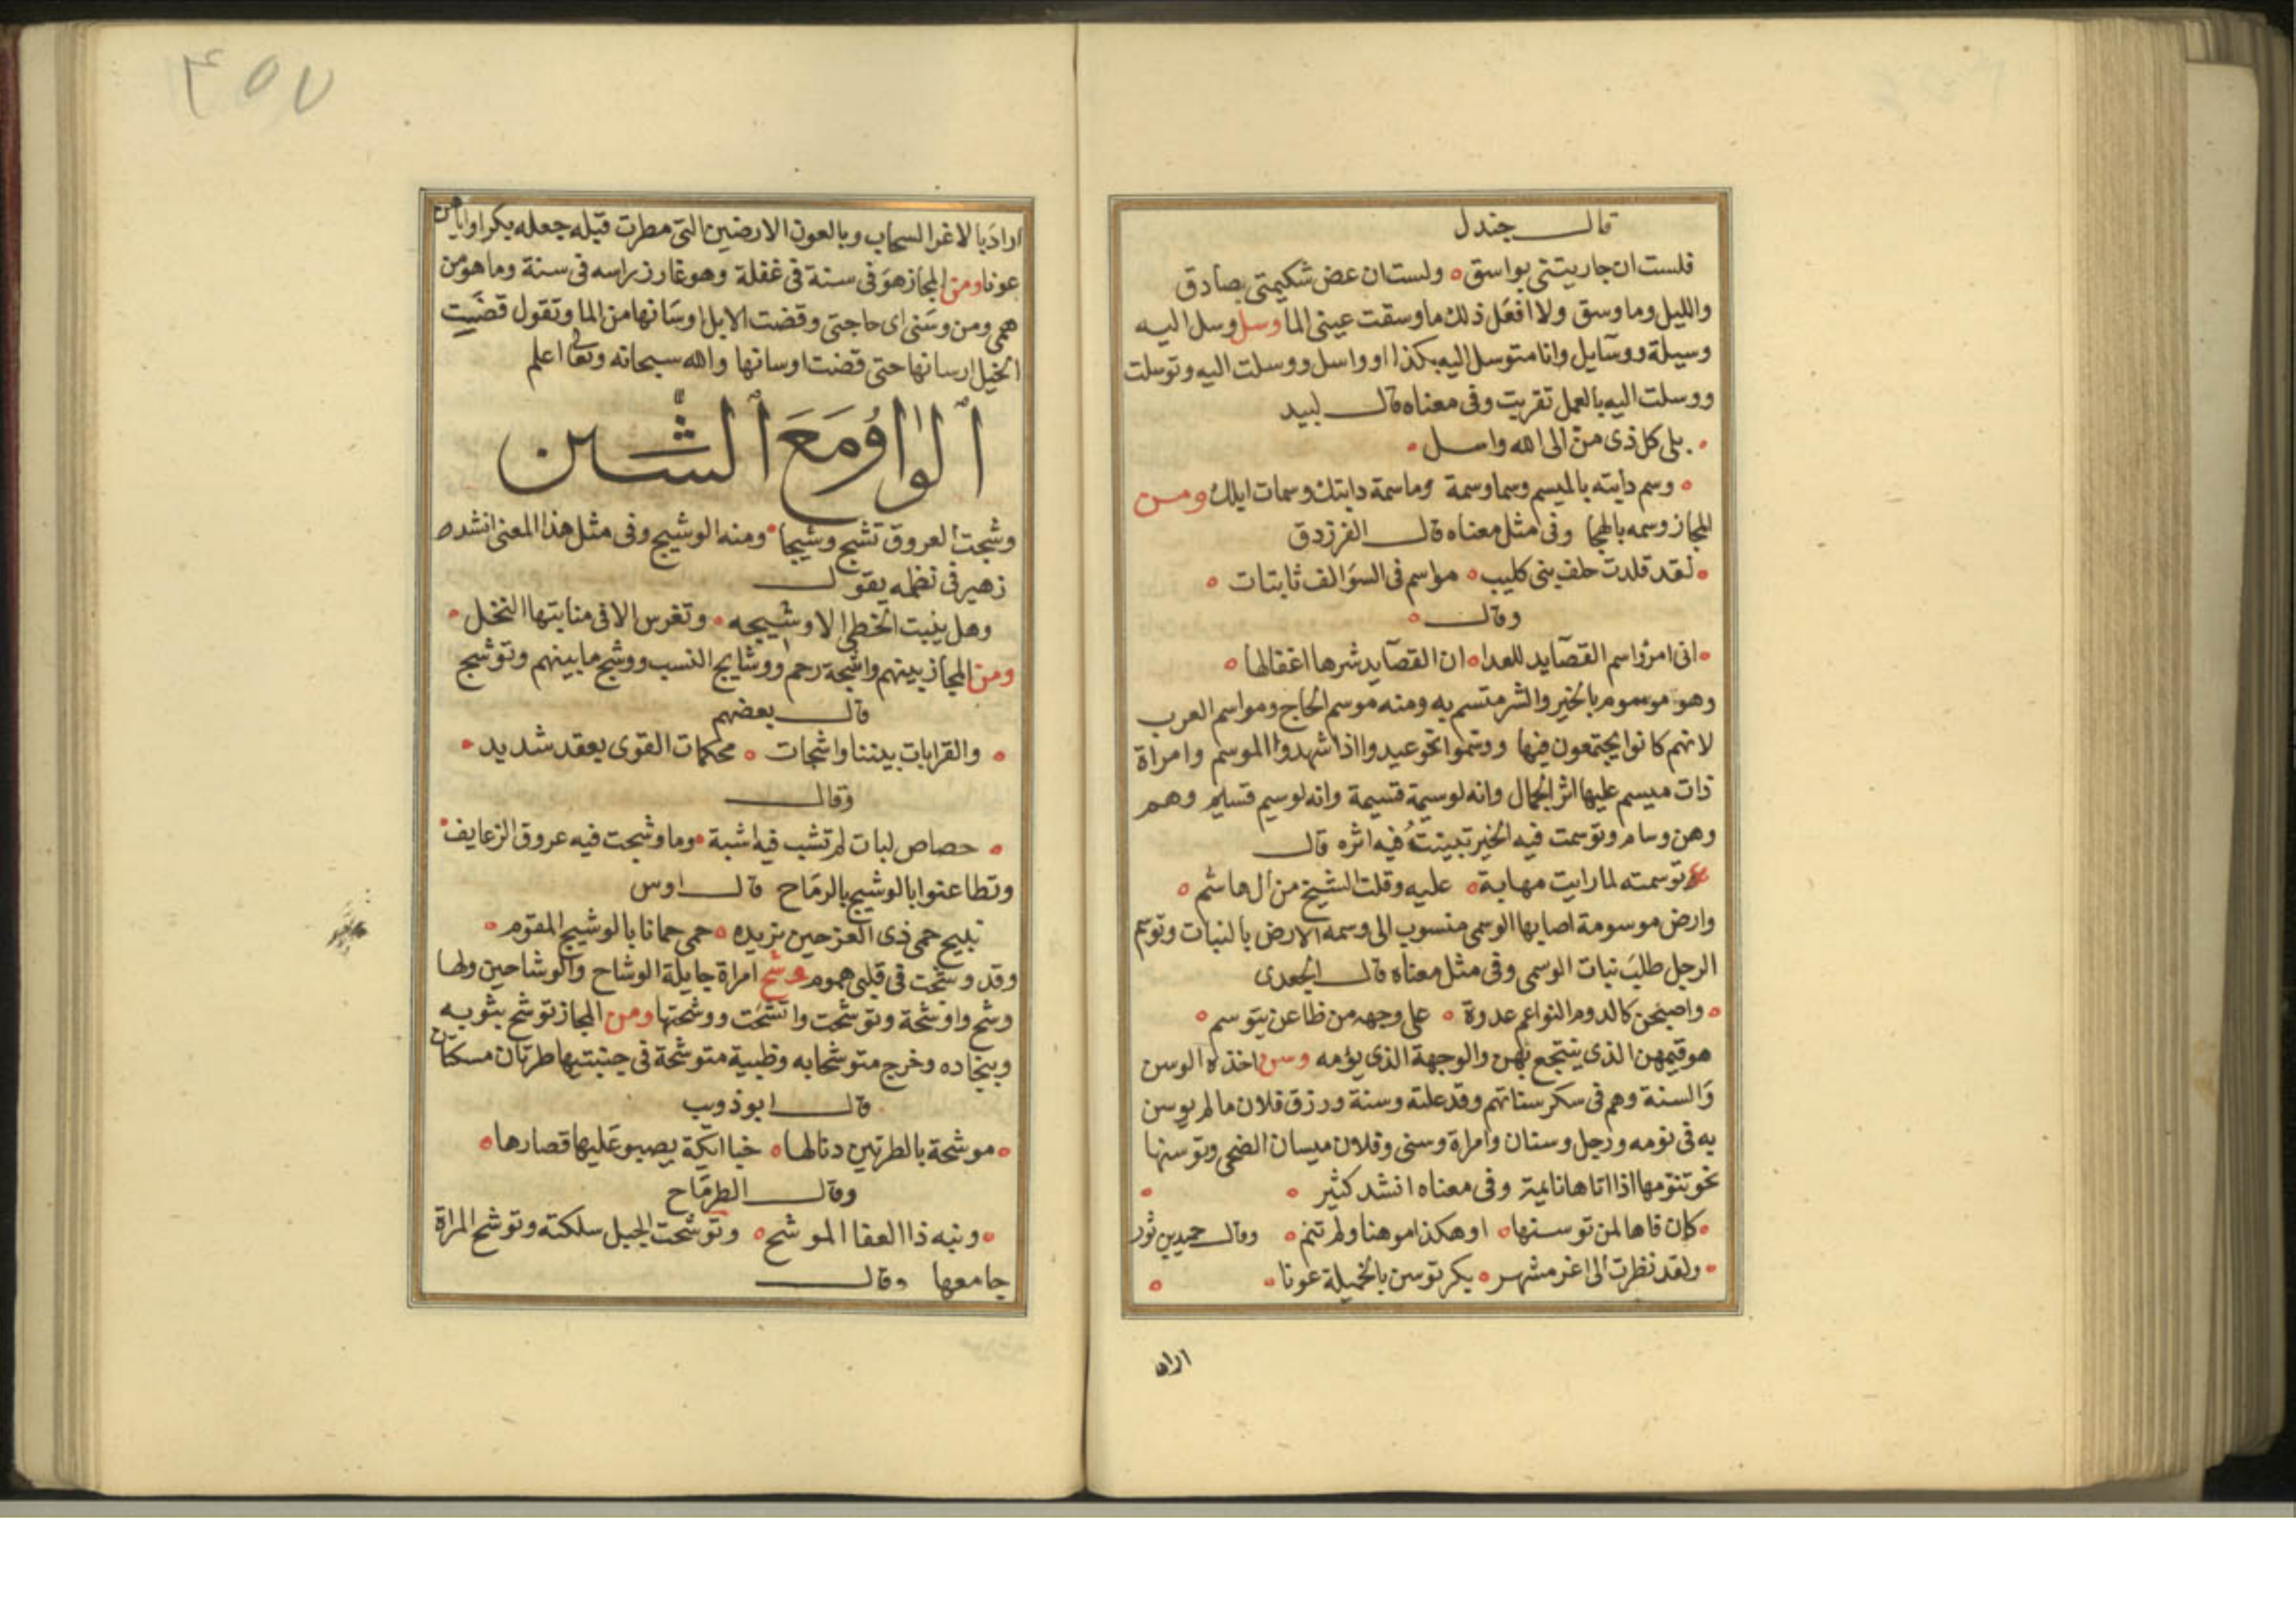 قال جندل
فلست ان جاريتني بواسق ولست ان عض شكيمتي بصادق
والليل وما وسق ولا افعل ذلك ما وسقت عيني الما وسل وسل اليه
وسيلة ووسآيل وانا متوسل اليه بكذا او واسل ووسلت اليه وتوسلت
ووسلت اليه بالعمل تقربت وفى معناه قال لبيد
بلى كل ذى من الى الله واسل
وسم دابته بالميسم وسما وسمة وما سمة دابتك وسمات ابلك ومن
المجاز وسمه بالهجا وفى مثل معناه قال الفرزدق
لقد قلدت حلف بنى كليب مواسم فى السوالف ثابتات
وقال
انى امرؤ اسم القصآيد للعدا ان القصآيد شرها اغفالها
وهو موسوم بالخير والشر متسم به ومنه موسم الحاج ومواسم العرب
لانهم كانوا يجتمعون فيها ووسموا نحو عيدوا اذا شهدوا الموسم وامراة
ذات ميسم عليها اثر الجمال وانه لوسيمة قسيمة وانه لوسيم قسيم وهم
وهن وسام وتوسمت فيه الخير تبينت فيه اثره قال
توسمته لما رايت مهابة عليه وقلت الشيخ من ال هاشم
وارض موسومة اصابها الوسمى منسوب الى وسمه الارض بالنبات وتوسم
الرجل طلب نبات الوسمى وفى مثل معناه قال الجعدى
واصبحن كالدوم النواعم عدوة على وجهه من ظاعن يتوسم
هو قيمهن الذى ينتجع بهن والوجهة الذى يؤمه وسن اخذه الوسن
والسنة وهم فى سكر سناتهم وقد علته وسنة ورزق فلان ما لم يوسن
به فى نومه ورجل وسنان وامراة وسنى وفلان ميسان الضحى وتوسنها
نحو تنومها اذا اتاها نايمة وفى معناه انشد كثير
كان فاها لمن توسنها او هكذا موهنا ولم تنم وقال حميد بن ثور
ولقد نظرت الى اغر مشهر بكر توسن بالخميلة عونا
اراد
٤٥٧
اراد بالاغر السحاب وبالعون الارضين التى مطرت قبله جعله بكرا واياهن
عونا ومن المجاز هو فى سنة فى غفلة وهو غارز راسه فى سنة وما هو من
همى ومن وسنى اى حاجتى وقضت الابل اوسانها من الما وتقول قضيت
الخيل ارسانها حتى قضت اوسانها والله سبحانه وتعالى اعلم
الواو مع الشين
وشجت العروق تشج وشيجا ومنه الوشيج وفى مثل هذا المعنى انشده
زهير فى نظمه يقول
وهل ينبت الخطى الا وشيجه وتغرس الا فى منابتها النخل
ومن المجاز بينهم واشجة رحم ووشايج النسب ووشج ما بينهم وتوشج
قال بعضهم
والقرابات بيننا واشجات محكمات القوى بعقد شديد
وقال
حصاص لبات لم تشب فيه اشبة وما وشجت فيه عروق الزعايف
وتطاعنوا بالوشيج بالرماح قال اوس
نبيح حمى ذى العز حين نريده حمى حمانا بالوشيج المقوم
وقد وشجت فى قلبى هموم وشح امراة جايلة الوشاح والوشاحين ولها
وشح واوشحة وتوشحت واتشحت ووشحتها ومن المجاز توشح بثوبه
وبنجاده وخرج متوشحا به وظبية متوشحة فى جنبتيها طرتان مسكتان
قال ابو ذويب
موشحة بالطرتين دنا لها جنا ايكة يصبو عليها قصارها
وقال الطرماح
ونبه ذا العفا الموشح وتوشحت الجبل سلكته وتوشح المراة
جامعها وقال